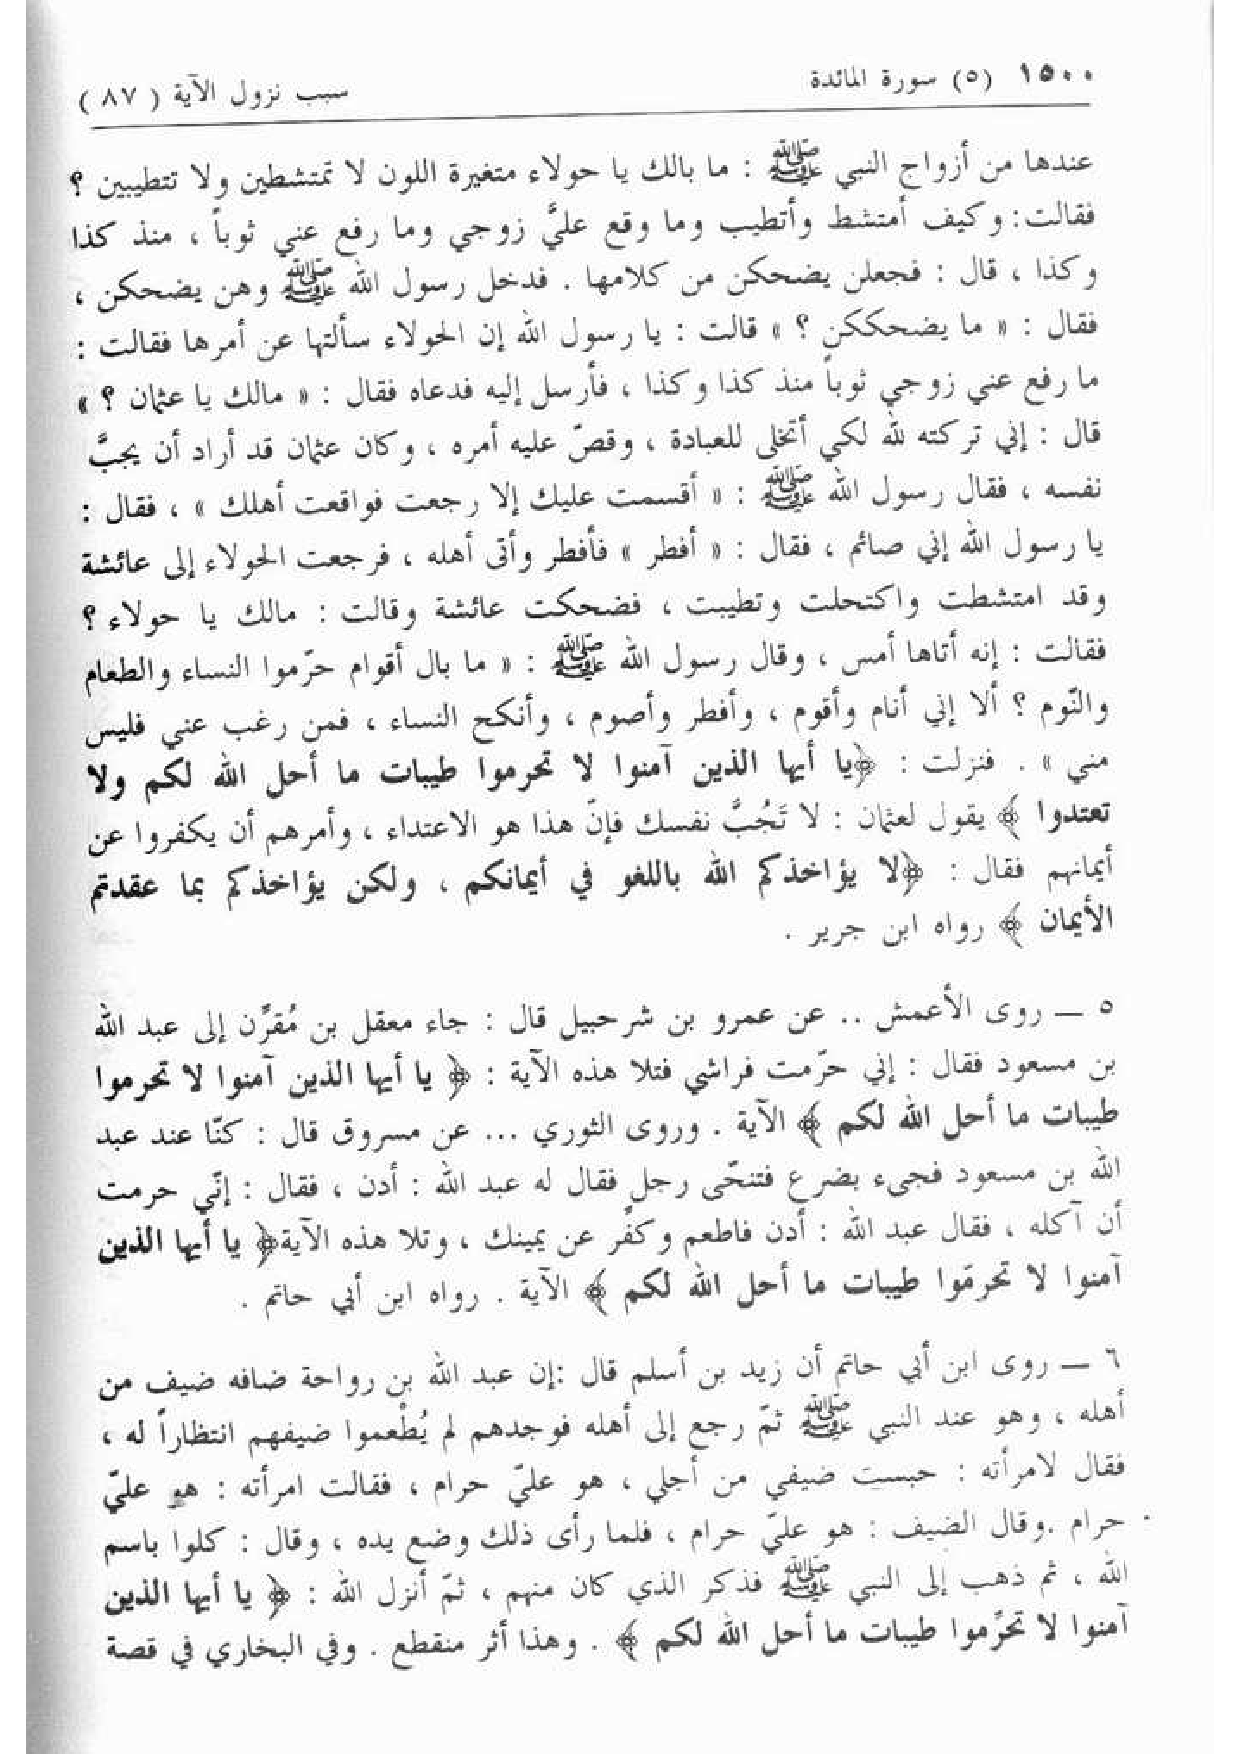 ١٥٠٠ (٥) سورة المائدة سبب نزول الآية ( ٨٧ )
عندها من أزواج النبي ﷺ : ما بالك يا حولاء متغيرة اللون لا تمتشطين ولا تتطيبين ؟
فقالت : وكيف أمتشط وأتطيب وما وقع عليَّ زوجي وما رفع عني ثوباً ، منذ كذا
وكذا ، قال : فجعلن يضحكن من كلامها . فدخل رسول الله ﷺ وهن يضحكن ،
فقال : « ما يضحككن ؟ » قالت : يا رسول الله إن الحولاء سألتها عن أمرها فقالت :
ما رفع عني زوجي ثوباً منذ كذا وكذا ، فأرسل إليه فدعاه فقال : « مالك يا عثمان ؟ »
قال : إني تركته لله لكي أتخلى للعبادة ، وقصّ عليه أمره ، وكان عثمان قد أراد أن يجبَّ
نفسه ، فقال رسول الله ﷺ : « أقسمت عليك إلا رجعت فواقعت أهلك » ، فقال :
يا رسول الله إني صائم ، فقال : « أفطر » فأفطر وأتى أهله ، فرجعت الحولاء إلى عائشة
وقد امتشطت واكتحلت وتطيبت ، فضحكت عائشة وقالت : مالك يا حولاء ؟
فقالت : إنه أتاها أمس ، وقال رسول الله ﷺ : « ما بال أقوام حرّموا النساء والطعام
والنّوم ؟ ألا إني أنام وأقوم ، وأفطر وأصوم ، وأنكح النساء ، فمن رغب عني فليس
مني » . فنزلت : ﴿يا أيها الذين آمنوا لا تحرموا طيبات ما أحل الله لكم ولا
تعتدوا ﴾ يقول لعثمان : لا تَجُبَّ نفسك فإنّ هذا هو الاعتداء ، وأمرهم أن يكفروا عن
أيمانهم فقال : ﴿لا يؤاخذكم الله باللغو في أيمانكم ، ولكن يؤاخذكم بما عقدتم
الأيمان ﴾ رواه ابن جرير .
٥ ــ روى الأعمش .. عن عمرو بن شرحبيل قال : جاء معقل بن مُقرَّن إلى عبد الله
بن مسعود فقال : إني حرّمت فراشي فتلا هذه الآية : ﴿ يا أيها الذين آمنوا لا تحرموا
طيبات ما أحل الله لكم ﴾ الآية . وروى الثوري ... عن مسروق قال : كنّا عند عبد
الله بن مسعود فجيء بضرع فتنحّى رجل فقال له عبد الله : أدن ، فقال : إنّي حرمت
أن آكله ، فقال عبد الله : أدن فاطعم وكفِّر عن يمينك ، وتلا هذه الآية﴿ يا أيها الذين
آمنوا لا تحرمّوا طيبات ما أحل الله لكم ﴾ الآية . رواه ابن أبي حاتم .
٦ ــ روى ابن أبي حاتم أن زيد بن أسلم قال :إن عبد الله بن رواحة ضافه ضيف من
أهله ، وهو عند النبي ﷺ ثمّ رجع إلى أهله فوجدهم لم يُطْعموا ضيفهم انتظاراً له ،
فقال لامرأته : حبست ضيفي من أجلي ، هو عليّ حرام ، فقالت امرأته : هو عليّ
حرام .وقال الضيف : هو عليّ حرام ، فلما رأى ذلك وضع يده ، وقال : كلوا باسم
الله ، ثم ذهب إلى النبي ﷺ فذكر الذي كان منهم ، ثمّ أنزل الله : ﴿ يا أيها الذين
آمنوا لا تحرِّموا طيبات ما أحل الله لكم ﴾ . وهذا أثر منقطع . وفي البخاري في قصة